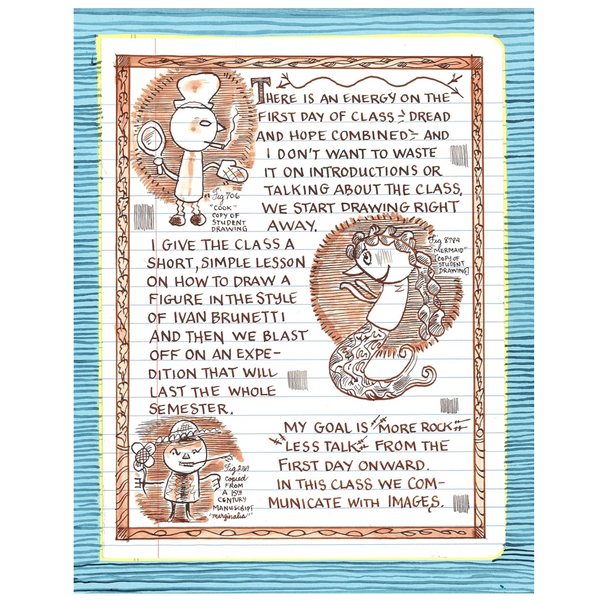 THERE IS AN ENERGY ON THE
FIRST DAY OF CLASS - DREAD
AND HOPE COMBINED - AND
I DON'T WANT TO WASTE
IT ON INTRODUCTIONS OR
TALKING ABOUT THE CLASS,
WE START DRAWING RIGHT
AWAY.
Fig 906
"COOK"
COPY OF
STUDENT
DRAWING
Fig. 8784
"MERMAID"
(COPY OF
STUDENT
DRAWING)
I GIVE THE CLASS A
SHORT, SIMPLE LESSON
ON HOW TO DRAW A
FIGURE IN THE STYLE
OF IVAN BRUNETTI
AND THEN WE BLAST
OFF ON AN EXPE-
DITION THAT WILL
LAST THE WHOLE
SEMESTER.
MY GOAL IS "MORE ROCK
LESS TALK" FROM THE
FIRST DAY ONWARD.
IN THIS CLASS WE COM-
MUNICATE WITH IMAGES.
Copied
FROM
A 15th
CENTURY
MANUSCRIPT
"marginalia"